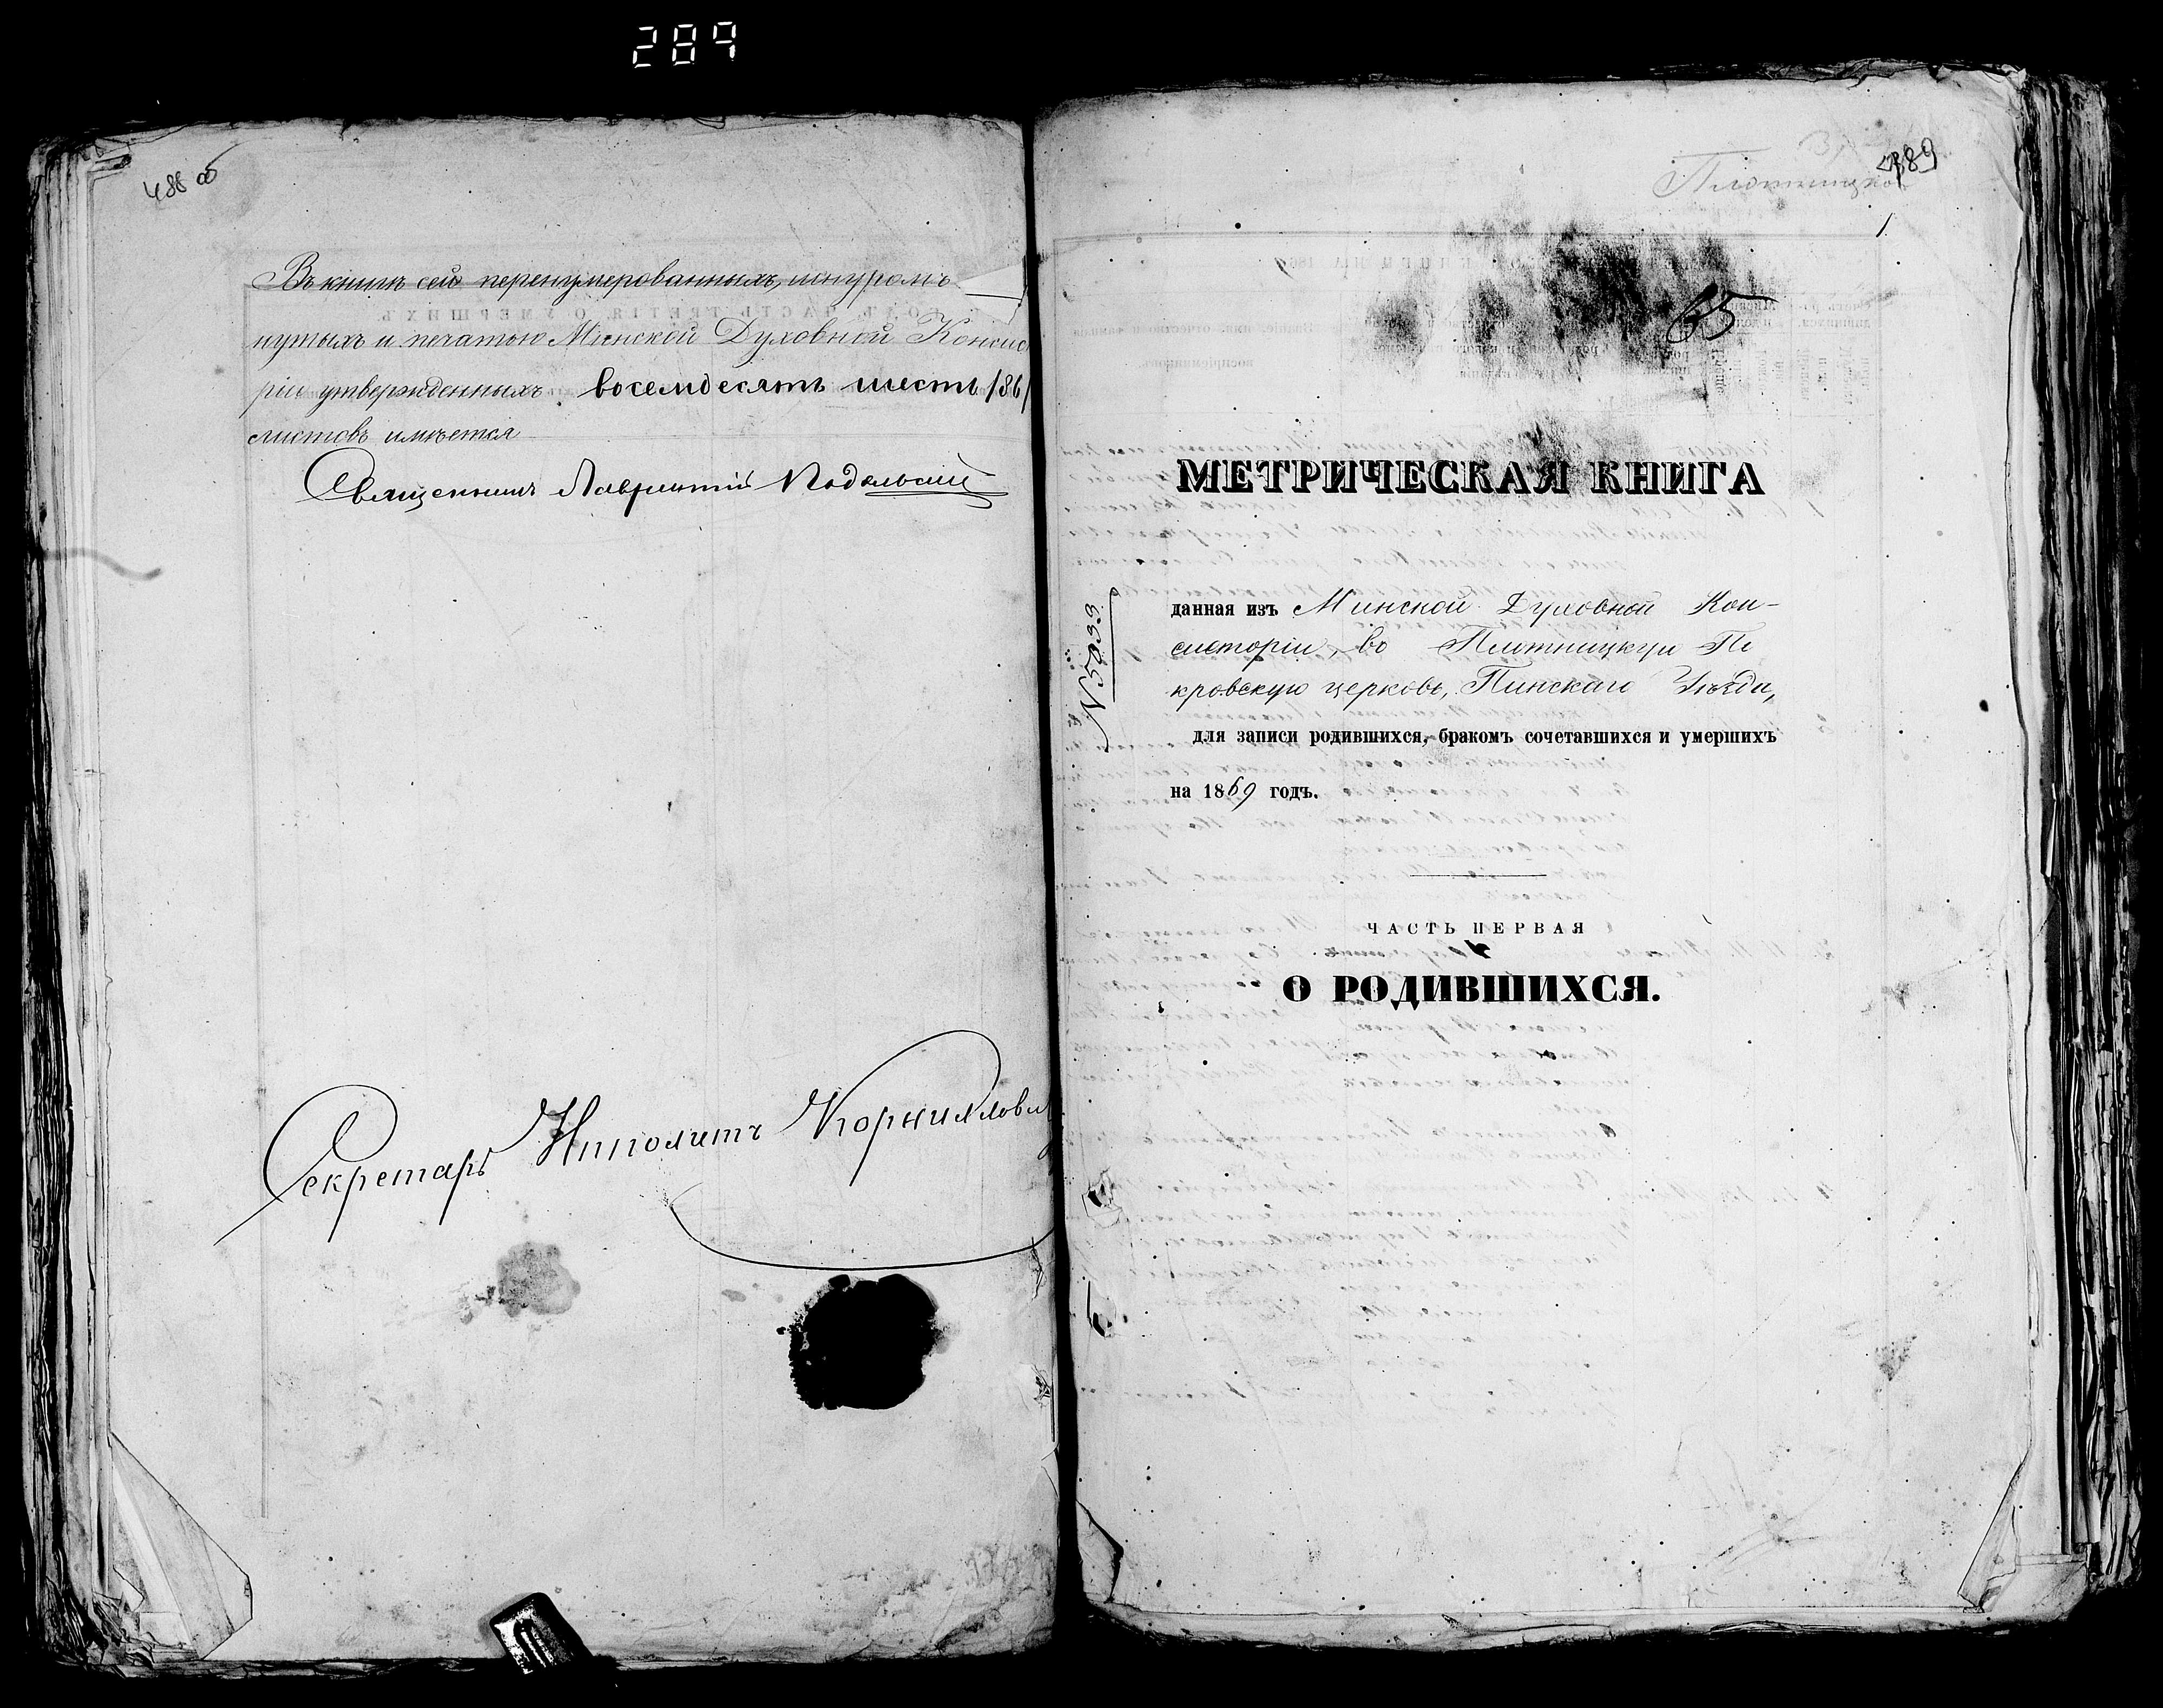 289
488 об
Въ книгѣ сей перенумерованныхъ, шнуромъ
нутыхъ и печатью Минской Духовной Консис
ріи утвержденныхъ восемдесятъ шесть /86/
листовъ имѣется
Священникъ Лаврентій Подольскій
Секретарь Ипполитъ Корнилови
489
Плотницкой
1
65
МЕТРИЧЕСКАЯ КНИГА
N 5033
данная изъ Минской Духовной Кон-
систоріи, во Плотницкую По
кровскую церковь, Пинскаго Уѣзда,
для записи родившихся, бракомъ сочетавшихся и умершихъ
на 1869 годъ.
ЧАСТЬ ПЕРВАЯ
О РОДИВШИХСЯ.